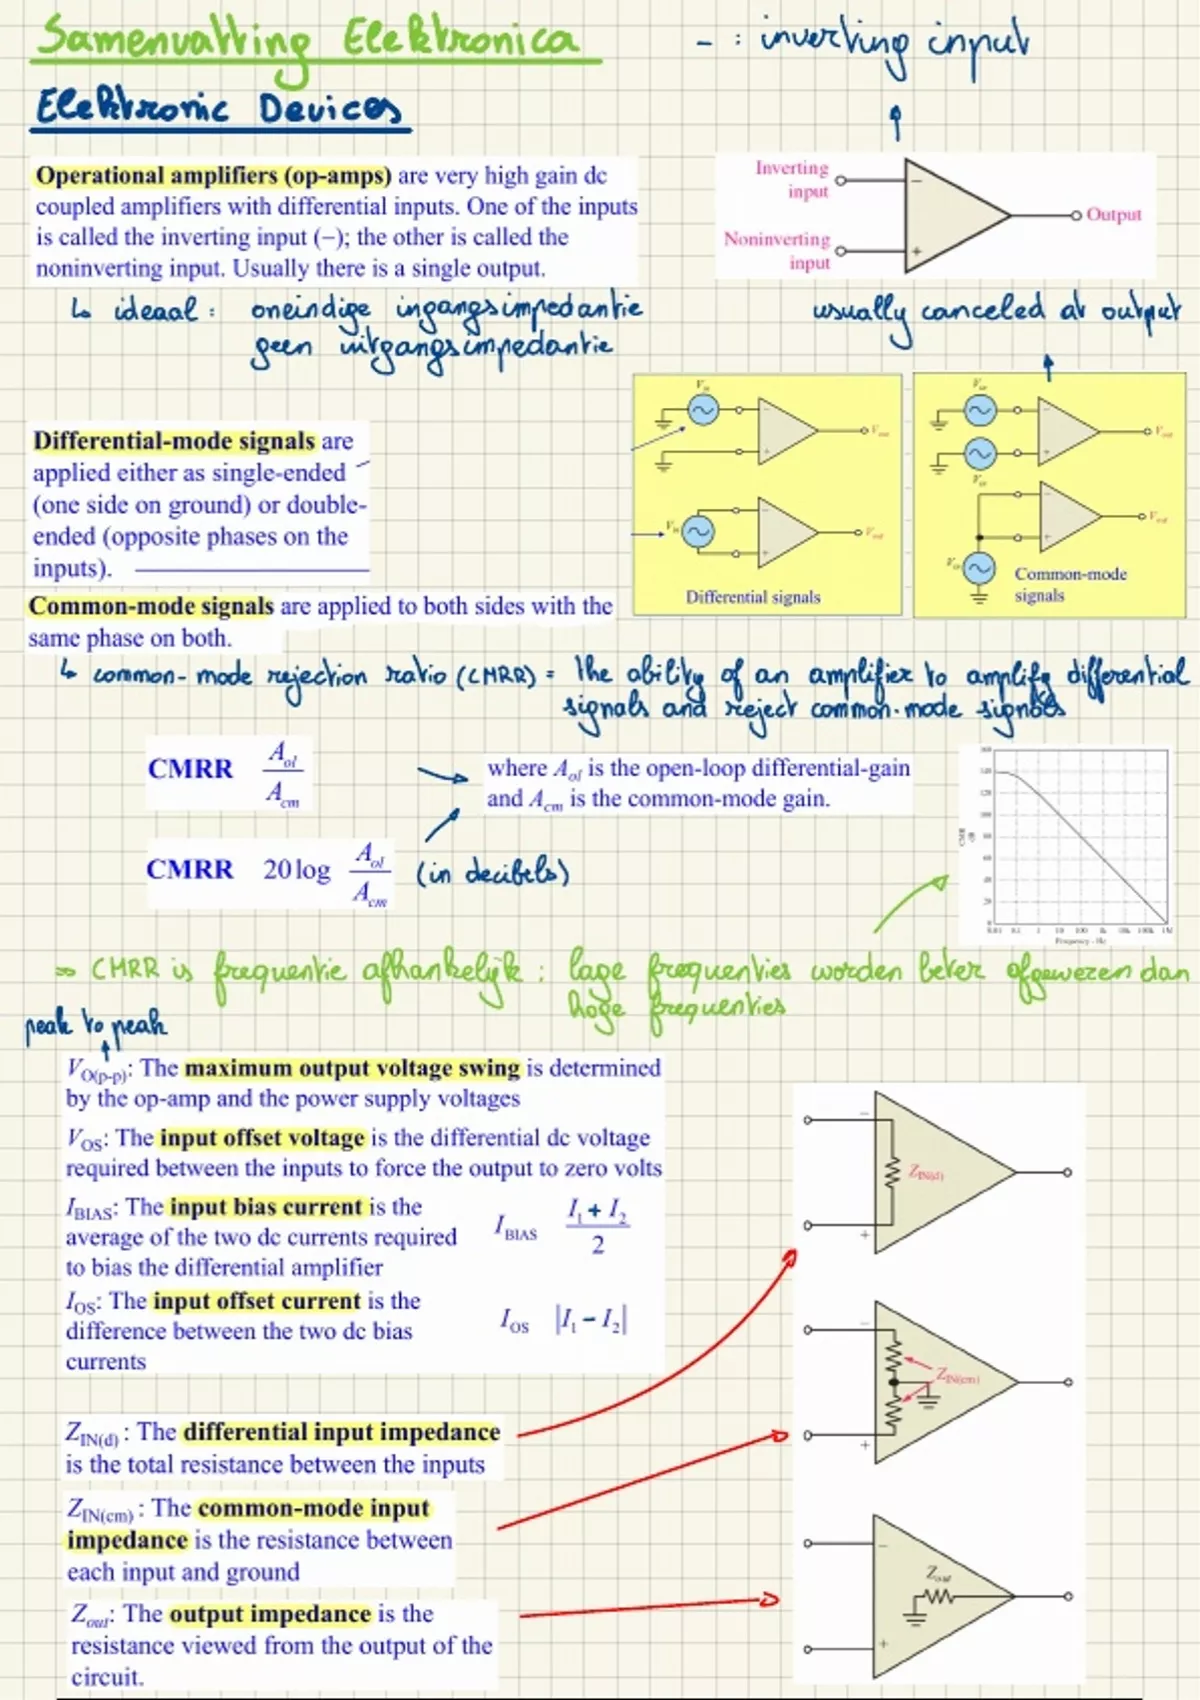 Samenvatting Elektronica
- : inverting input
Elektronic Devices
Operational amplifiers (op-amps) are very high gain dc
coupled amplifiers with differential inputs. One of the inputs
is called the inverting input (−); the other is called the
noninverting input. Usually there is a single output.
Inverting
input
−
Output
Noninverting
input
+
↳ ideaal : oneindige ingangsimpedantie
geen uitgangsimpedantie
usually canceled at output
Differential-mode signals are
applied either as single-ended
(one side on ground) or double-
ended (opposite phases on the
inputs).
Vin
Vout
Vin
Vout
Differential signals
Vout
Vout
Common-mode
signals
Common-mode signals are applied to both sides with the
same phase on both.
↳ common-mode rejection ratio (CMRR) = the ability of an amplifier to amplify differential
signals and reject common-mode signals
CMRR Aol
Acm
where Aol is the open-loop differential-gain
and Acm is the common-mode gain.
CMRR 20 log Aol
Acm
(in decibels)
Frequency - Hz
⇒ CMRR is frequentie afhankelijk : lage frequenties worden beter afgewezen dan
hoge frequenties
peak to peak
VO(p-p): The maximum output voltage swing is determined
by the op-amp and the power supply voltages
VOS: The input offset voltage is the differential dc voltage
required between the inputs to force the output to zero volts
IBIAS: The input bias current is the
average of the two dc currents required
to bias the differential amplifier
IBIAS I1 + I2
2
IOS: The input offset current is the
difference between the two dc bias
currents
IOS |I1 − I2|
ZIN(d) : The differential input impedance
is the total resistance between the inputs
ZIN(cm) : The common-mode input
impedance is the resistance between
each input and ground
Zout: The output impedance is the
resistance viewed from the output of the
circuit.
−
ZIN(d)
+
−
ZIN(cm)
+
−
Zout
+